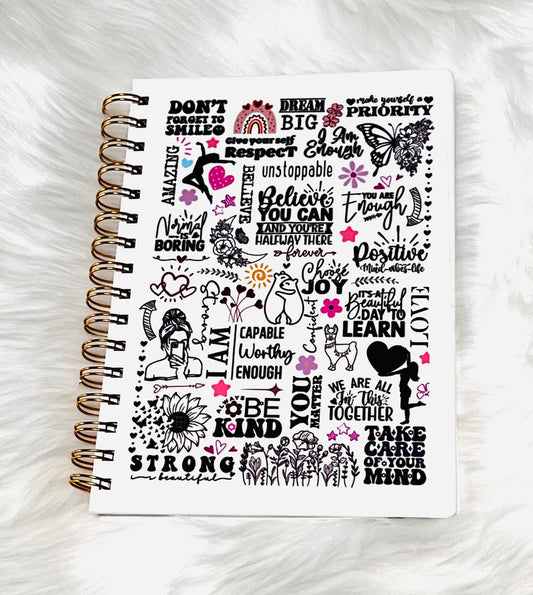 DON'T
FORGET TO
SMILE
DREAM
BIG
make yourself a
PRIORITY
Give yourself
RespecT
I Am
Enough
AMAZING
BELIEVE
unstoppable
Believe
YOU CAN
AND YOU'RE
HALFWAY THERE
forever
YOU ARE
Enough
Normal
IS
BORING
Positive
Mind-vibes-life
Choose
JOY
IT'S A
Beautiful
DAY TO
LEARN
LOVE
Strong
I AM
CAPABLE
Worthy
ENOUGH
Confident
YOU
MATTER
WE ARE ALL
In This
TOGETHER
BE
KIND
STRONG
beautiful
TAKE
CARE
OF YOUR
MIND